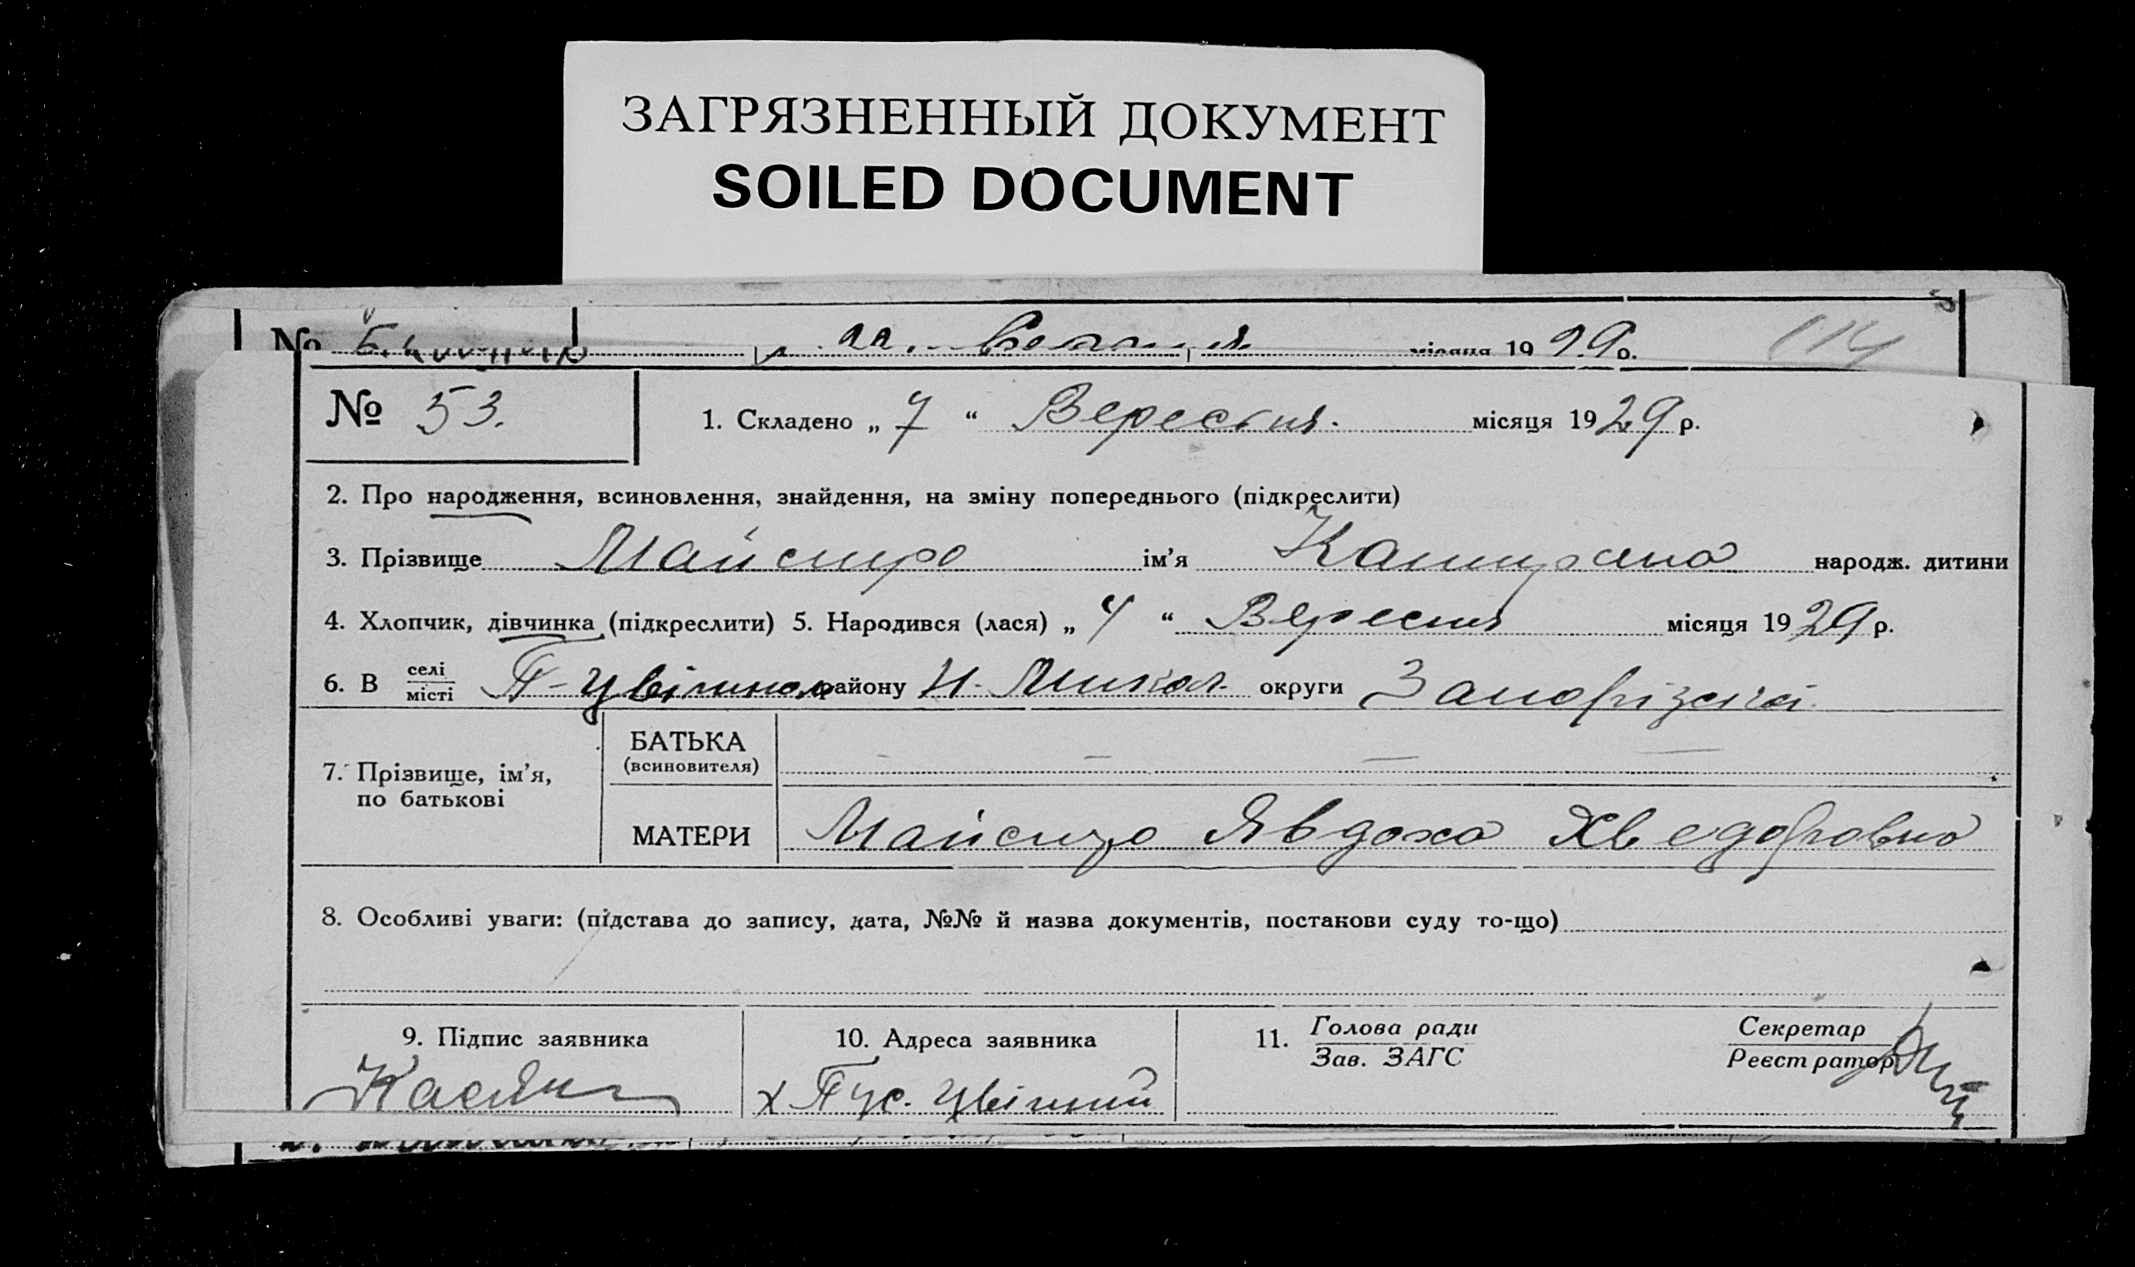 ЗАГРЯЗНЕННЫЙ ДОКУМЕНТ
SOILED DOCUMENT
№ місяця 1929 р. 114
№ 53. 1. Складено „ 7 “ Вересня. місяця 1929 р.
2. Про народження, всиновлення, знайдення, на зміну попереднього (підкреслити)
3. Прізвище Майстро ім’я народж. дитини
4. Хлопчик, дівчинка (підкреслити) 5. Народився (лася) „ 4 “ Вересня місяця 1929 р.
6. В селі місті П-Цвітном району Н. Микол. округи Запорізькі
7. Прізвище, ім’я, по батькові
БАТЬКА (всиновителя) — — — —
МАТЕРИ Майстро Явдоха Хведоровна
8. Особливі уваги: (підстава до запису, дата, №№ й назва документів, постанови суду то-що)
9. Підпис заявника 10. Адреса заявника 11. Голова ради Секретар
Зав. ЗАГС Реєстратор
х Пус. Цвітний